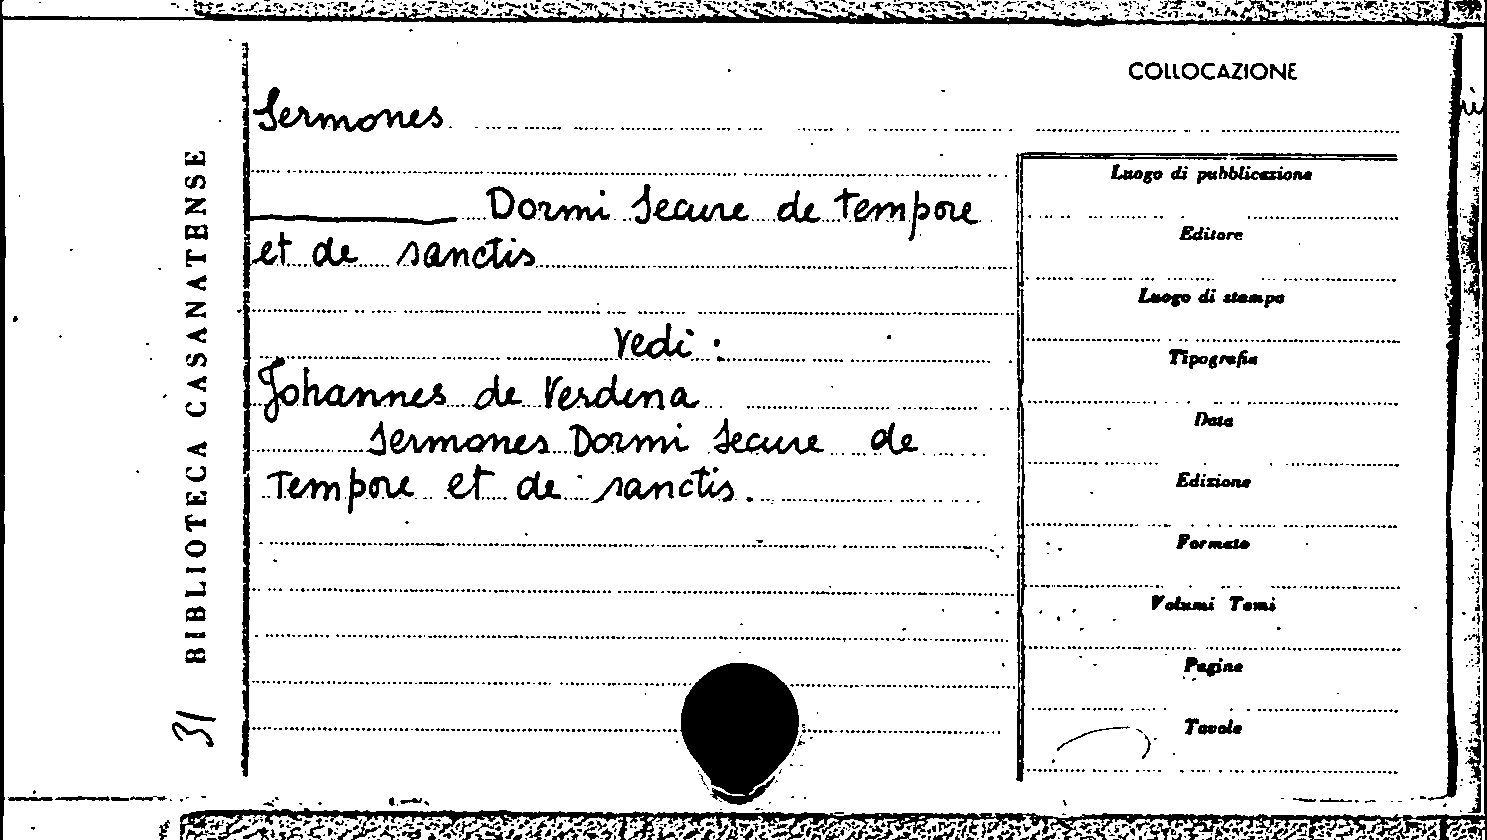 COLLOCAZIONE
Sermones
Dormi Secure de tempore
et de sanctis
Vedi :
Johannes de Verdena
Sermones Dormi Secure de
Tempore et de sanctis.
Luogo di pubblicazione
Editore
Luogo di stampa
Tipografia
Data
Edizione
Formato
Volumi Tomi
Pagine
Tavole
BIBLIOTECA CASANATENSE
31